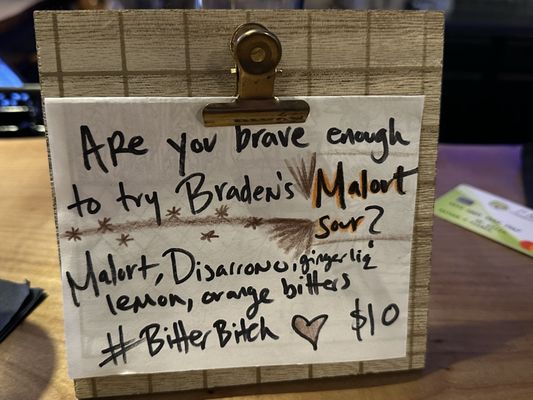 ARe you brave enough
to try Braden's Malort
sour?
Malort, Disarrono, ginger liq
lemon, orange bitters
#BitterBitch ♡ $10